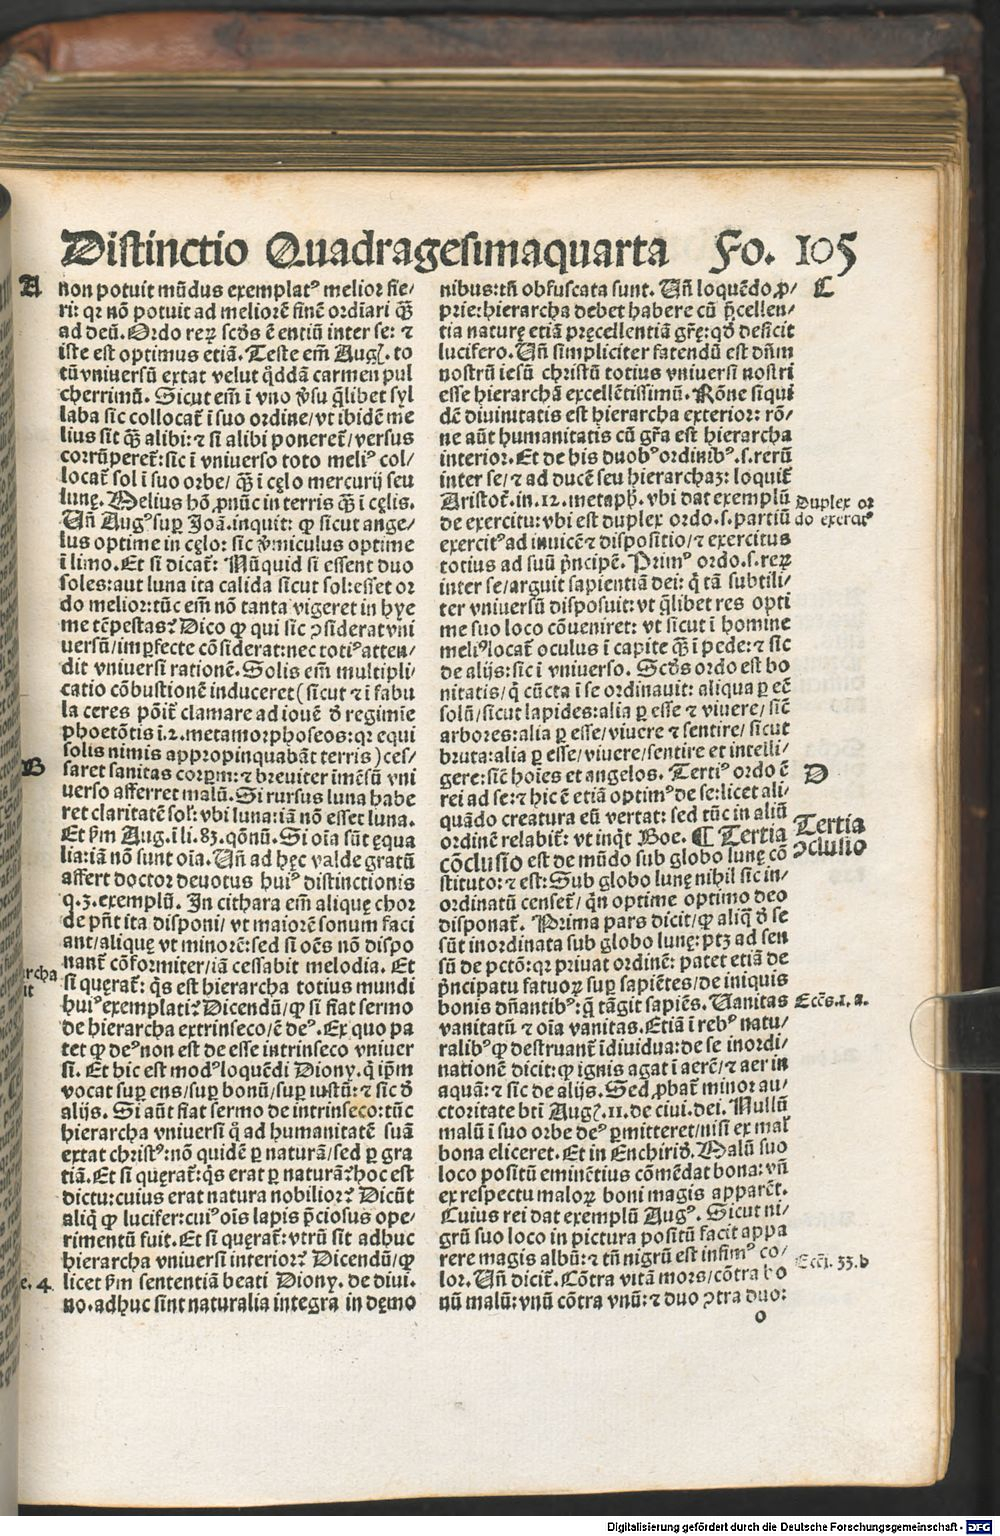 Distinctio Quadragesimaquarta Fo. 105
A
non potuit mũdus exemplatꝰ melior fie/
ri: qr nõ potuit ad meliorẽ finẽ ordiari q̃
ad deũ. Ordo reꝝ scðs ẽ entiũ inter se: ⁊
iste est optimus etiã. Teste em̃ Aug. to
tũ vniuersũ extat velut q̃ddã carmen pul
cherrimũ. Sicut em̃ i vno v̓su q̃libet syl
laba sic collocat̃ i suo ordine/ vt ibidẽ me
lius sit q̃ alibi: ⁊ si alibi poneret̃/ versus
corrũperet̃: sic ĩ vniuerso toto meliꝰ col/
locat̃ sol i suo orbe/ q̃ ĩ cęlo mercurij seu
lunę. Melius hõ ꝓnũc in terris q̃ ĩ cęlis.
Uñ Augꝰ suꝑ Joã. inquit: ꝙ sicut ange/
lus optime in cęlo: sic v̓miculus optime
ĩ limo. Et si dicat̃: Nũquid si essent duo
soles: aut luna ita calida sicut sol: esset or
do melior: tũc em̃ nõ tanta vigeret in hye
me tẽpestas? Dico ꝙ qui sic ↄsiderat vni
uersũ/ imꝑfecte cõsiderat: nec totiꝰ atten/
dit vniuersi rationẽ. Solis em̃ multipli/
catio cõbustionẽ induceret (sicut ⁊ ĩ fabu
la ceres põit̃ clamare ad iouẽ ð regimĩe
phoetõtis i. 2. metamorphoseos: qr equi
solis nimis appropinquabãt terris) ces/
B
saret sanitas corpꝝ: ⁊ breuiter imẽsũ vni
uerso afferret malũ. Si rursus luna habe
ret claritatẽ sol: vbi luna: iã nõ esset luna.
Et ẜm Aug. i li. 83. qõnũ. Si oĩa sũt ęqua
lia: iã nõ sunt oĩa. Uñ ad hęc valde gratũ
affert doctor deuotus huiꝰ distinctionis
q. 3. exemplũ. In cithara em̃ aliquę chor
de pñt ita disponi/ vt maiorẽ sonum faci
ant/ aliquę vt minorẽ: sed si oẽs nõ dispo
nant̃ cõformiter/ iã cessabit melodia. Et
rcha
it
si quęrat̃: q̃s est hierarcha totius mundi
huiꝰ exemplati? Dicendũ/ ꝙ si fiat sermo
de hierarcha extrinseco/ ẽ deꝰ. Ex quo pa
tet ꝙ deꝰ non est de esse intrinseco vniuer
si. Et hic est modꝰ loquẽdi Diony. q̃ ip̃m
vocat suꝑ ens/ suꝑ bonũ/ suꝑ iustũ: ⁊ sic ð
alijs. Si aũt fiat sermo de intrinseco: tũc
hierarcha vniuersi q̃ ad humanitatẽ suã
extat christꝰ: nõ quidẽ ꝑ naturã/ sed ꝑ gra
tiã. Et si quęrat̃: q̃s erat ꝑ naturã? hoc est
dictu: cuius erat natura nobilior? Dicũt
aliq̃ ꝙ lucifer: cuiꝰ oĩs lapis p̃ciosus ope/
rimentũ fuit. Et si quęrat̃: vtrũ sit adhuc
hierarcha vniuersi interior? Dicendũ/ ꝙ
e. 4.
licet ẜm sententiã beati Diony. de diui.
no. adhuc sint naturalia integra in dęmo
C
nibus: tñ obfuscata sunt. Uñ loquẽdo ꝓ/
prie: hierarcha debet habere cũ p̃cellen/
tia naturę etiã pręcellentiã gr̃e: qð deficit
lucifero. Uñ simpliciter fatendũ est dñm
nostrũ iesũ christũ totius vniuersi nostri
esse hierarchã excellẽtissimũ. Rõne siqui
dẽ diuinitatis est hierarcha exterior: rõ/
ne aũt humanitatis cũ gr̃a est hierarcha
interior. Et de his duobꝰ ordinibꝰ .s. rerũ
inter se/ ⁊ ad ducẽ seu hierarchaʒ: loquit̃
Aristot̃. in. 12. metaph. vbi dat exemplũ
Duplex or
do exercitꝰ
de exercitu: vbi est duplex ordo .s. partiũ
exercitꝰ ad inuicẽ ⁊ dispositio/ ⁊ exercitus
totius ad suũ p̃ncipẽ. Primꝰ ordo .s. reꝝ
inter se/ arguit sapientiã dei: q̃ tã subtili/
ter vniuersũ disposuit: vt q̃libet res opti
me suo loco cõueniret: vt sicut ĩ homine
meliꝰ locat̃ oculus i capite q̃ ĩ pede: ⁊ sic
de alijs: sic i vniuerso. Scðs ordo est bo
nitatis/ q̃ cũcta i se ordinauit: aliqua ꝑ eẽ
solũ/ sicut lapides: alia ꝑ esse ⁊ viuere/ siẽ
arbores: alia ꝑ esse/ viuere ⁊ sentire/ sicut
bruta: alia ꝑ esse/ viuere/ sentire et intelli/
D
gere: siẽ hoĩes et angelos. Tertiꝰ ordo ẽ
rei ad se: ⁊ hic ẽ etiã optimꝰ de se: licet ali/
quãdo creatura eũ vertat: sed tũc in aliũ
Tertia
ↄclusio
ordinẽ relabit̃: vt inq̃t Boe. ¶ Tertia
cõclusio est de mũdo sub globo lunę cõ
stituto: ⁊ est: Sub globo lunę nihil sic in/
ordinatũ censet̃/ q̃n optime optimo deo
disponat̃. Prima pars dicit/ ꝙ aliq̃ ð se
sũt inordinata sub globo lunę: ptʒ ad sen
sũ de pctõ: qr priuat ordinẽ: patet etiã de
p̃ncipatu fatuoꝝ suꝑ sapiẽtes/ de iniquis
bonis dñantibꝰ: q̃ tãgit sapiẽs. Uanitas
Eccẽs. 1. a.
vanitatũ ⁊ oĩa vanitas. Etiã i rebꝰ natu/
ralibꝰ ꝙ destruant̃ ĩdiuidua: de se inordi/
nationẽ dicit: ꝙ ignis agat i aerẽ/ ⁊ aer in
aquã: ⁊ sic de alijs. Sed ꝓbat̃ minor au/
ctoritate bti Aug. 11. de ciui. dei. Nullũ
malũ i suo orbe deꝰ ꝑmitteret/ nisi ex mal
bona eliceret. Et in Enchirið. Malũ suo
loco positũ eminẽtius cõmẽdat bona: vñ
ex respectu maloꝝ boni magis apparẽt.
Cuius rei dat exemplũ Augꝰ. Sicut ni/
grũ suo loco in pictura positũ facit appa
rere magis albũ: ⁊ tñ nigrũ est infimꝰ co/
Eccĩ. 33. b
lor. Uñ dicit̃. Cõtra vitã mors/ cõtra bo
nũ malũ: vnũ cõtra vnũ: ⁊ duo ↄtra duo:
o
Digitalisierung gefördert durch die Deutsche Forschungsgemeinschaft - DFG